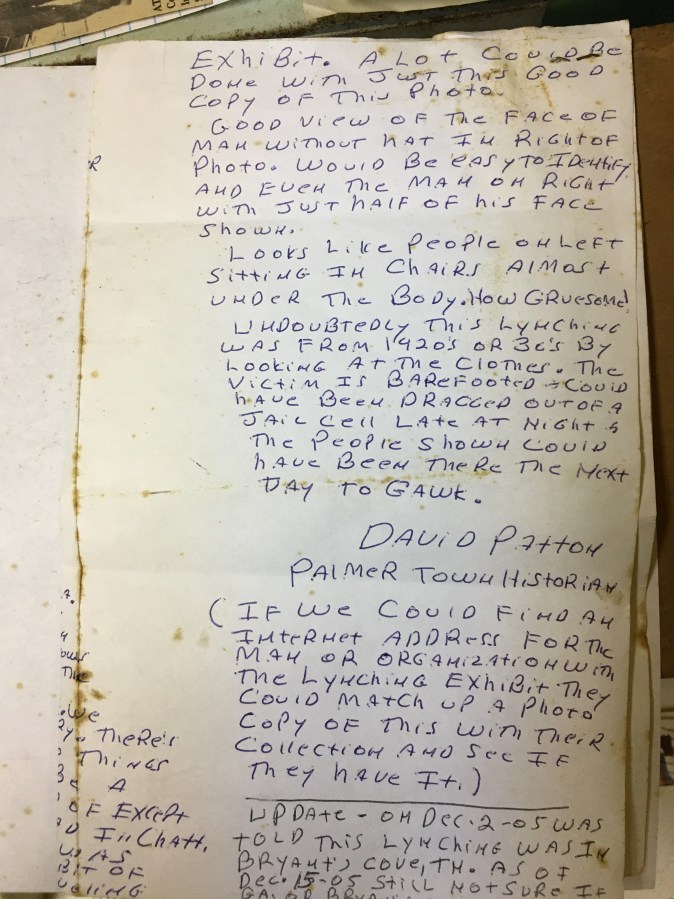 EXHIBIT. A LOT COULD BE
DONE WITH JUST THIS GOOD
COPY OF THIS PHOTO.
GOOD VIEW OF THE FACE OF
MAN WITHOUT HAT IN RIGHT OF
PHOTO. WOULD BE EASY TO IDENTIFY
AND EVEN THE MAN ON RIGHT
WITH JUST HALF OF HIS FACE
SHOWN.
LOOKS LIKE PEOPLE ON LEFT
SITTING IN CHAIRS ALMOST
UNDER THE BODY. HOW GRUESOME!
UNDOUBTEDLY THIS LYNCHING
WAS FROM 1920'S OR 30'S BY
LOOKING AT THE CLOTHES. THE
VICTIM IS BAREFOOTED & COULD
HAVE BEEN DRAGGED OUT OF A
JAIL CELL LATE AT NIGHT &
THE PEOPLE SHOWN COULD
HAVE BEEN THERE THE NEXT
DAY TO GAWK.
DAVID PATTON
PALMER TOWN HISTORIAN
(IF WE COULD FIND AN
INTERNET ADDRESS FOR THE
MAN OR ORGANIZATION WITH
THE LYNCHING EXHIBIT THEY
COULD MATCH UP A PHOTO
COPY OF THIS WITH THEIR
COLLECTION AND SEE IF
THEY HAVE IT.)
UPDATE - ON DEC. 2-05 WAS
TOLD THIS LYNCHING WAS IN
BRYANT'S COVE, TN. AS OF
DEC. 15-05 STILL NOT SURE IF
R
THE
WE
THERE'S
THINGS
A
OF EXCEPT
IN CHATT.
AS
OF